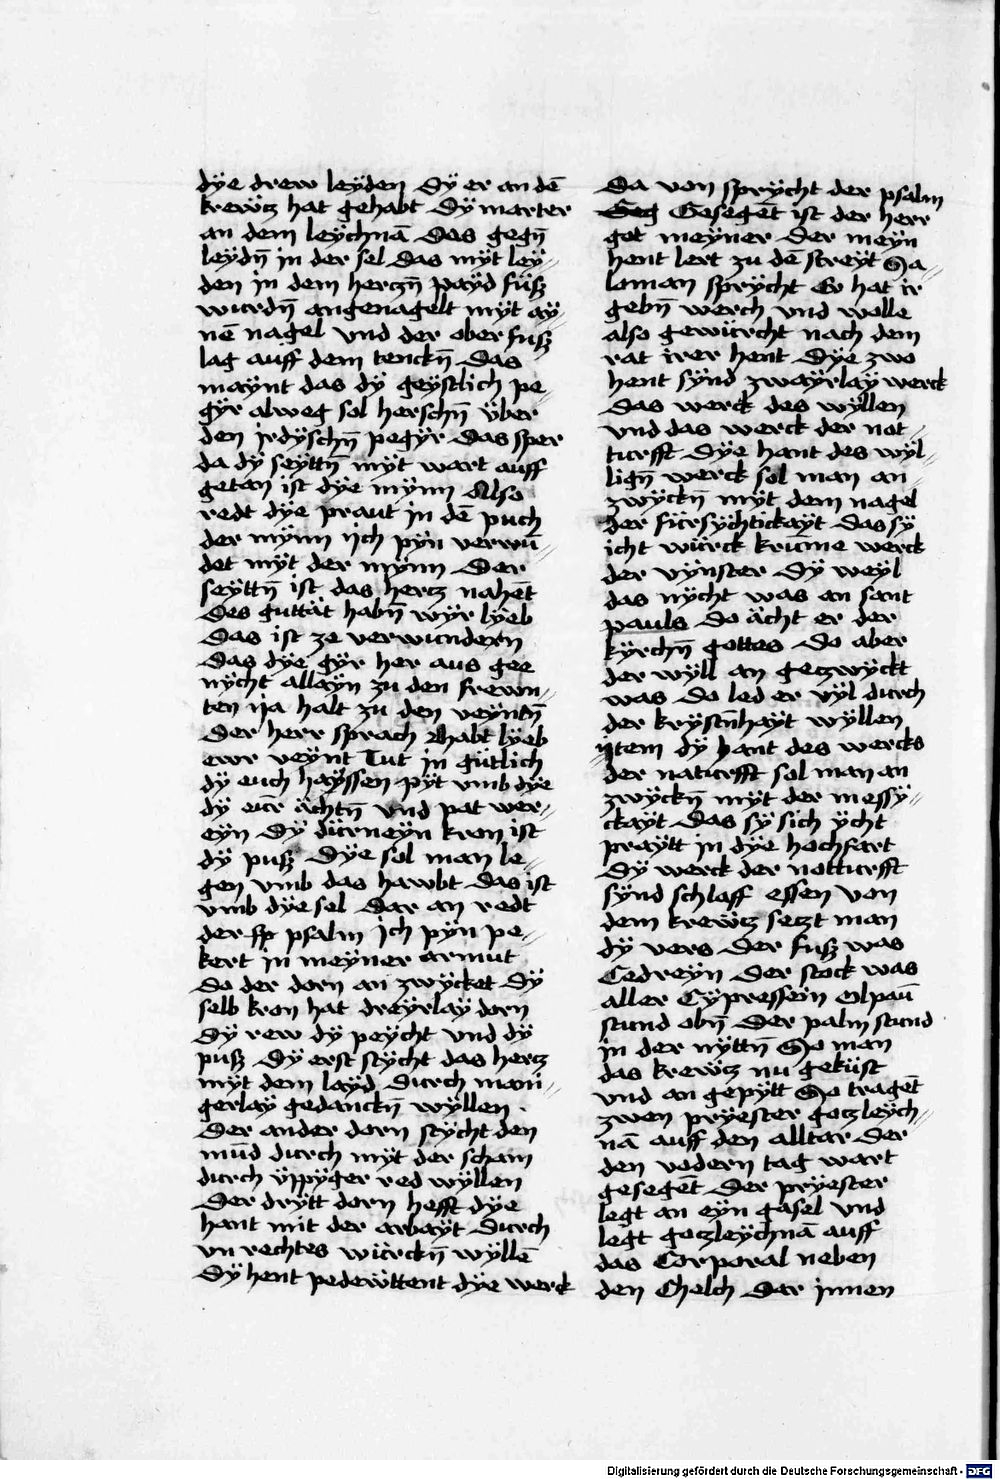 dÿe drew leÿden Dÿ er an dē
krewcz hat gehabt Dÿ marter
an dem leÿchnā Das gegn̄
leÿdn̄ in der sel Das mÿt leÿ-
den in dem herczn̄ paÿd füsz
wurdn̄ angenagelt mÿt aÿ-
nē nagel vnd der ober fusz
lag auff dem tenckn̄ Das
maÿnt das dÿ geÿstlich pe
gÿr alweg sol herschn̄ vber
den irdÿschn̄ pegÿr Das sper
da dÿ seÿttn̄ mÿt wart auff
getan ist dÿe mÿnn Also
redt dÿe praut in dē puch
der mÿnn ijch pÿn verwū-
det mÿt der mÿnn Der
seÿttn̄ ist das hercz nahēt
Des guttät habn̄ wÿr lÿeb
Das ist ze verwundern
Das dÿe gÿr her aus gee
nÿcht allaÿn zu den frewn-
ten ija halt zu den veÿntn̄
Der herr sprach Habt lÿeb
ewr veÿnt Tut in gütlich
dÿ euch haÿssen pÿt vmb dÿe
dÿ eur ächtn̄ vnd pat wer-
eÿn Dÿ dürneÿn kron ist
dÿ pusz Dÿe sol man le-
gen vmb das hawbt das ist
vmb dÿe sel Dar an redt
der psalm Ich pÿn pe-
kert in meÿner armut
do der dorn an zwÿcket Dÿ
selb kron hat dreÿrlaÿ dorn
Dÿ rew dÿ peÿcht vnd dÿ
pusz Dÿ erst stÿcht das hercz
mÿt dem laÿd Durch mani-
gerlaÿ gedanckn̄ wÿllen .
Der ander dorn stÿcht den
mūd durch mÿt der scham
durch ÿppÿger red wÿllen
Der drÿtt dorn hefft dÿe
hant mit der arbaÿt Durch
vn rechtes würckn̄ wÿllē
Dÿ hent pedewttent dÿe werck
Da von sprÿcht der psalm
Geseg̅et ist der herr
got meÿner Der meÿn
hent lert zu dē streÿt Sa-
loman sprÿcht Er hat ir
gebn̄ werch vnd wolle
also gewürcht nach dem
rat irer hent Dÿe zwo
hent sÿnd zwaÿrlaÿ werck
Das werck des wÿllen
vnd das werck der not-
turfft Dÿe hant des wÿl-
lign̄ werck sol man an-
zwÿckn̄ mÿt dem nagel
der fürsÿchtickaÿt Das sÿ
icht würck krūme werck
der vÿnster Dÿ weÿl
das nÿcht was an sant
pauls Do ächt er der
kÿrchn̄ gottes Do aber
der wÿll an gezwÿckt
was Do led er vÿl durch
der krÿstn̄haÿt wÿllen
ijtem dÿ hant des wercks
der naturfft sol man an
zwÿckn̄ mÿt der messÿ-
ckaÿt Das sÿ sich ÿcht
praÿtt in dÿe hochfart
Dÿ werck der notturfft
sÿnd schlaff essen von
dem krewcz seczt man
dÿ vers Der fusz was
Cedreÿn Der stock was
aller Cÿpressein Olpaū
stund obn̄ Der palm stund
in der mÿttn̄ So man
das krewcz nu geküst
vnd an gepÿtt So tragēt
zwen prÿester goczleÿch-
nā auff den alltar Der
den vodern tag wart
gesegēt Der prÿester
legt an eÿn gasel vnd
legt goczleÿchnā auff
das Corporal neben
den Chelch Dar innen
Digitalisierung gefördert durch die Deutsche Forschungsgemeinschaft - DFG